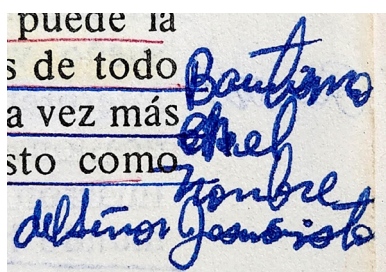 puede la
s de todo
a vez más
sto como
Bautismo
en el
nombre
del Señor Jesucristo